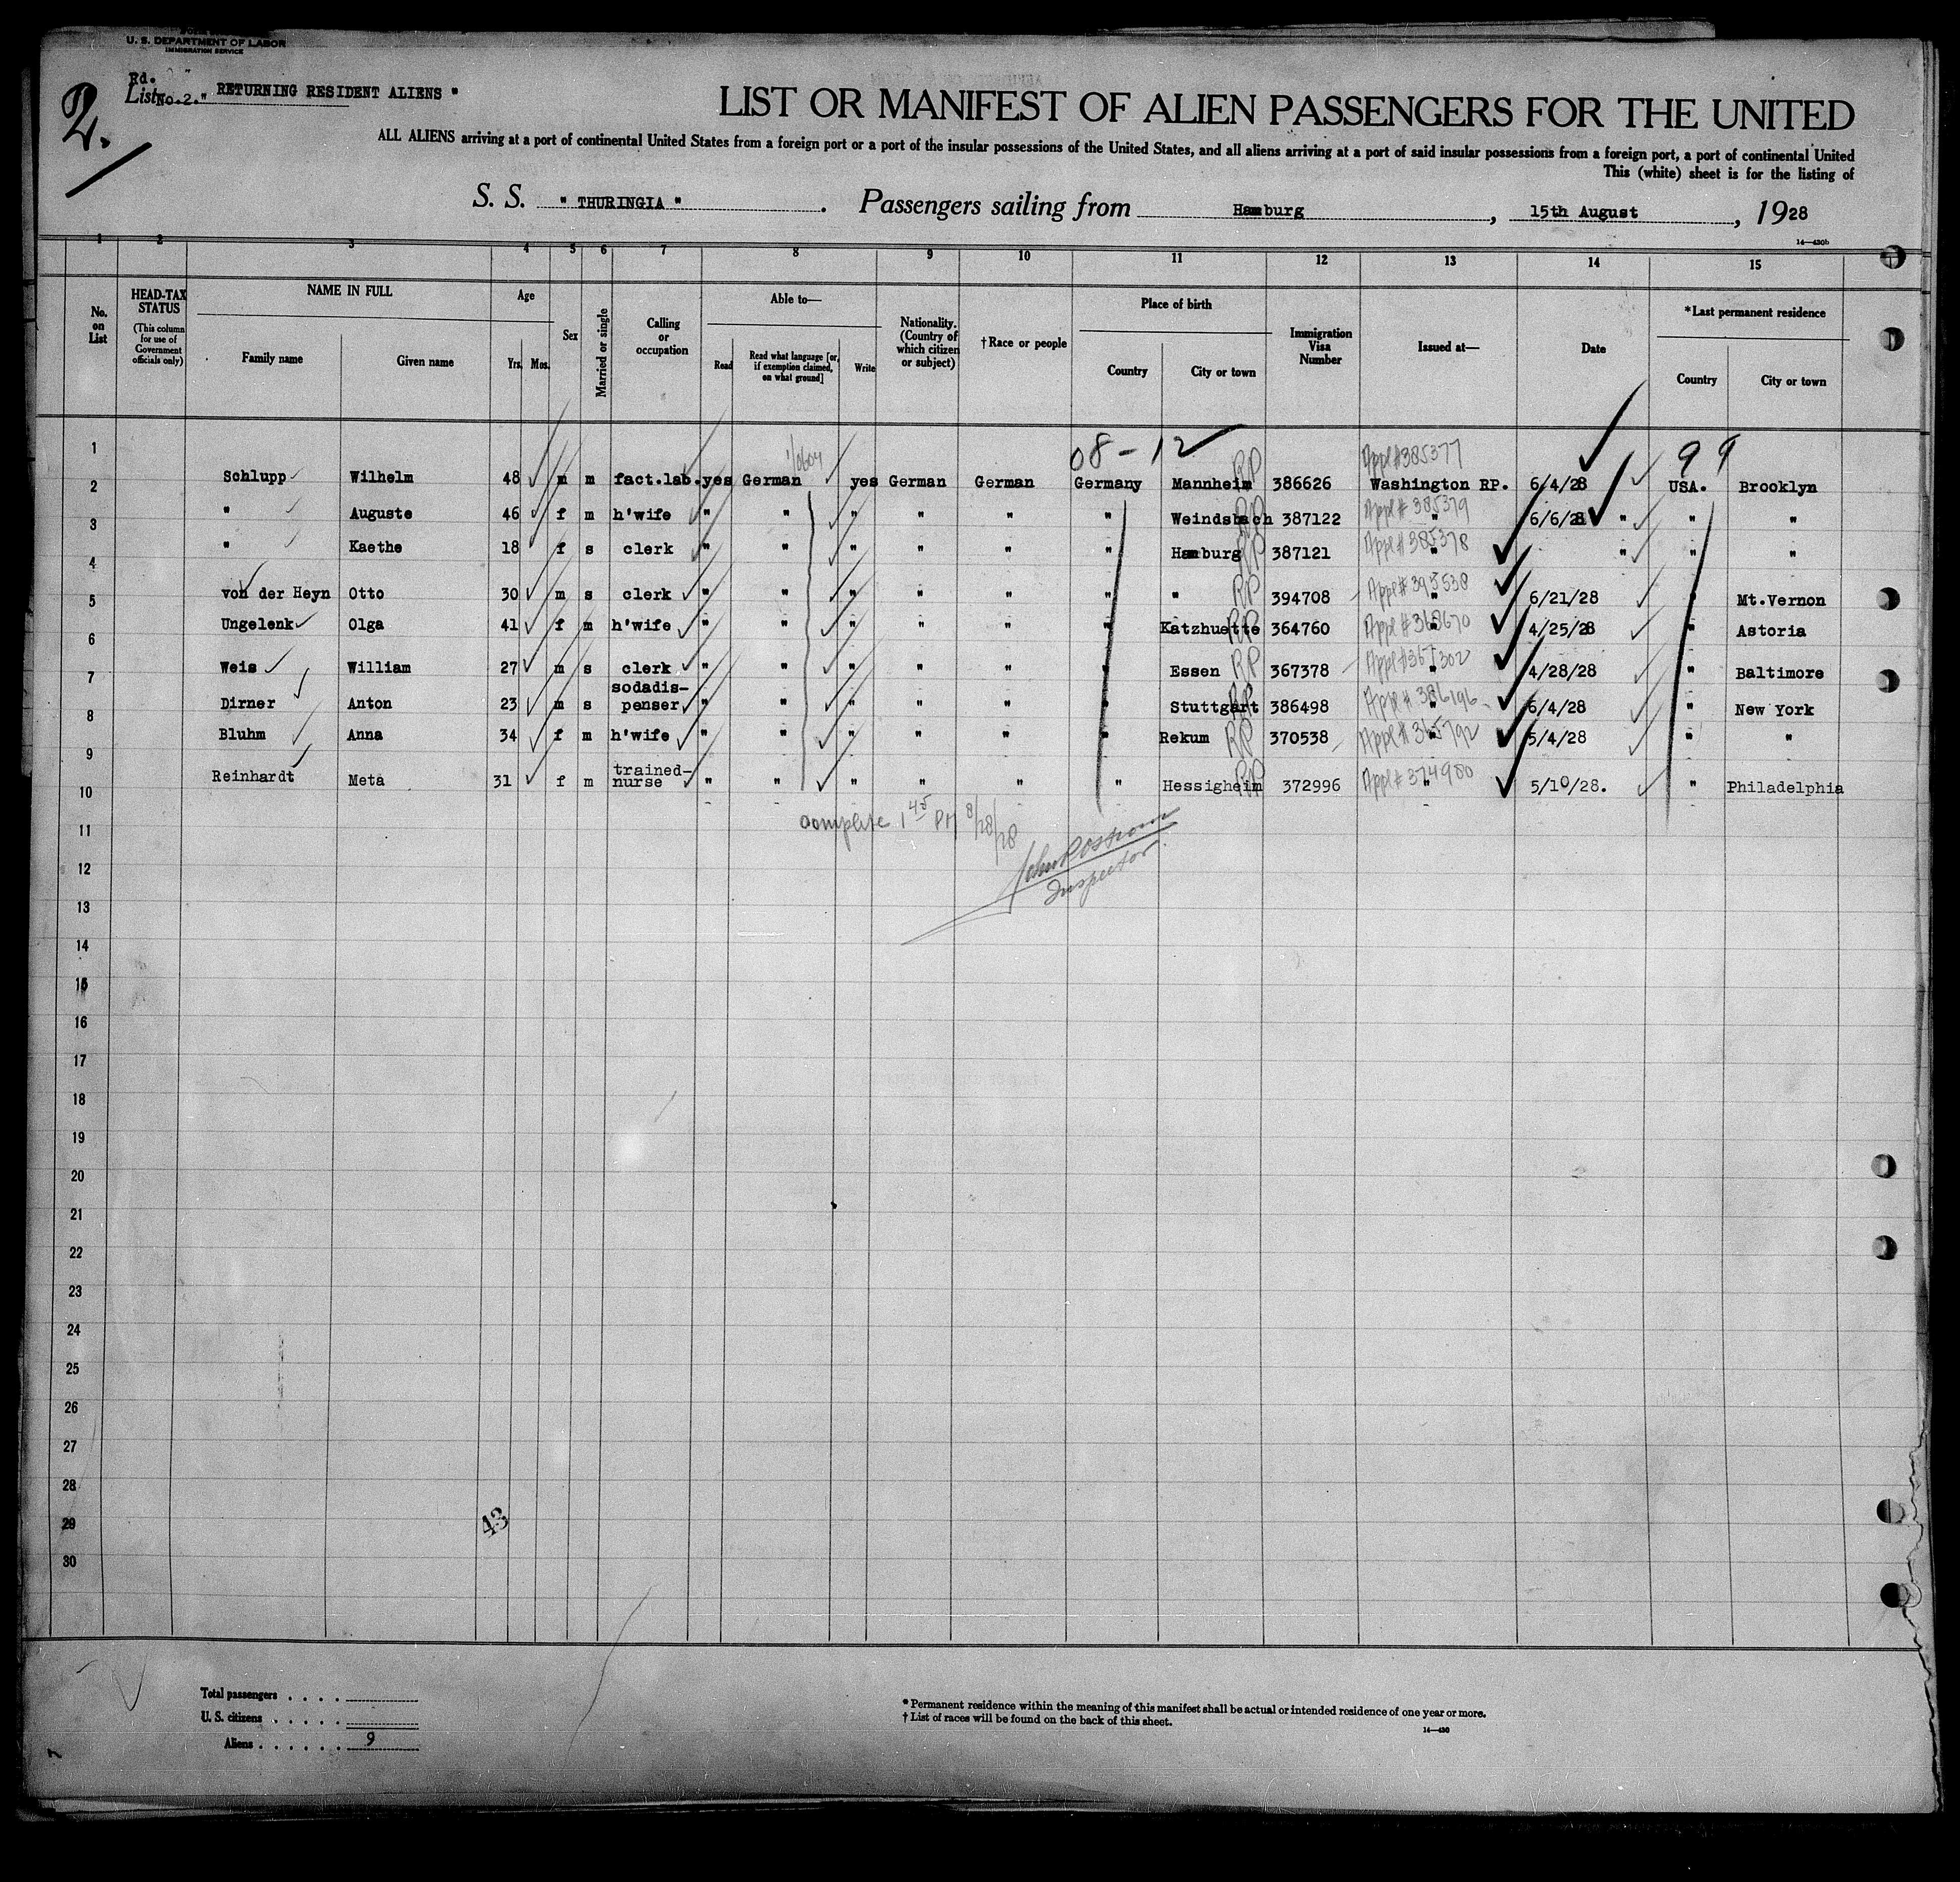 U. S. DEPARTMENT OF LABOR
IMMIGRATION SERVICE
2.
Rd.
List No.2." RETURNING RESIDENT ALIENS "
LIST OR MANIFEST OF ALIEN PASSENGERS FOR THE UNITED
ALL ALIENS arriving at a port of continental United States from a foreign port or a port of the insular possessions of the United States, and all aliens arriving at a port of said insular possessions from a foreign port, a port of continental United
This (white) sheet is for the listing of
S. S. " THURINGIA " . Passengers sailing from Hamburg , 15th August , 1928
14—430b
1 2 3 4 5 6 7 8 9 10 11 12 13 14 15
No. on List
HEAD-TAX STATUS
(This column for use of Government officials only)
NAME IN FULL
Family name Given name
Age
Yrs. Mos.
Sex
Married or single
Calling or occupation
Able to—
Read Read what language [or, if exemption claimed, on what ground] Write
Nationality. (Country of which citizen or subject)
†Race or people
Place of birth
Country City or town
Immigration Visa Number
Issued at—
Date
*Last permanent residence
Country City or town
1
08-12 Appl#385377 99
2 Schlupp Wilhelm 48 m m fact.lab. yes German yes German German Germany Mannheim RP 386626 Washington RP. 6/4/28 USA. Brooklyn
3 " Auguste 46 f m h'wife " " " " " " Weindsbach RP 387122 Appl# 385379 " 6/6/28 " " "
4 " Kaethe 18 f s clerk " " " " " " Hamburg RP 387121 Appl# 385378 " " " "
5 von der Heyn Otto 30 m s clerk " " " " " " " RP 394708 Appl# 395538 " 6/21/28 Mt.Vernon
6 Ungelenk Olga 41 f m h'wife " " " " " " Katzhuette RP 364760 Appl# 368670 " 4/25/28 " Astoria
7 Weis William 27 m s clerk " " " " " " Essen RP 367378 " 4/28/28 " Baltimore
8 Dirner Anton 23 m s sodadis-
penser " " " " " " Stuttgart RP 386498 Appl# 386196 " 6/4/28 " New York
9 Bluhm Anna 34 f m h'wife " " " " " " Rekum RP 370538 Appl# 365792 " 5/4/28 " "
10 Reinhardt Meta 31 f m trained-
nurse " " " " " " Hessigheim RP 372996 Appl# 374980 " 5/10/28. " Philadelphia
complete 1 45 PM 8/28/28
11
Inspector.
12
13
14
15
16
17
18
19
20
21
22
23
24
25
26
27
28
29
43
30
Total passengers . . . .
U. S. citizens . . . . .
Aliens . . . . . . 9
* Permanent residence within the meaning of this manifest shall be actual or intended residence of one year or more.
† List of races will be found on the back of this sheet.
14—430